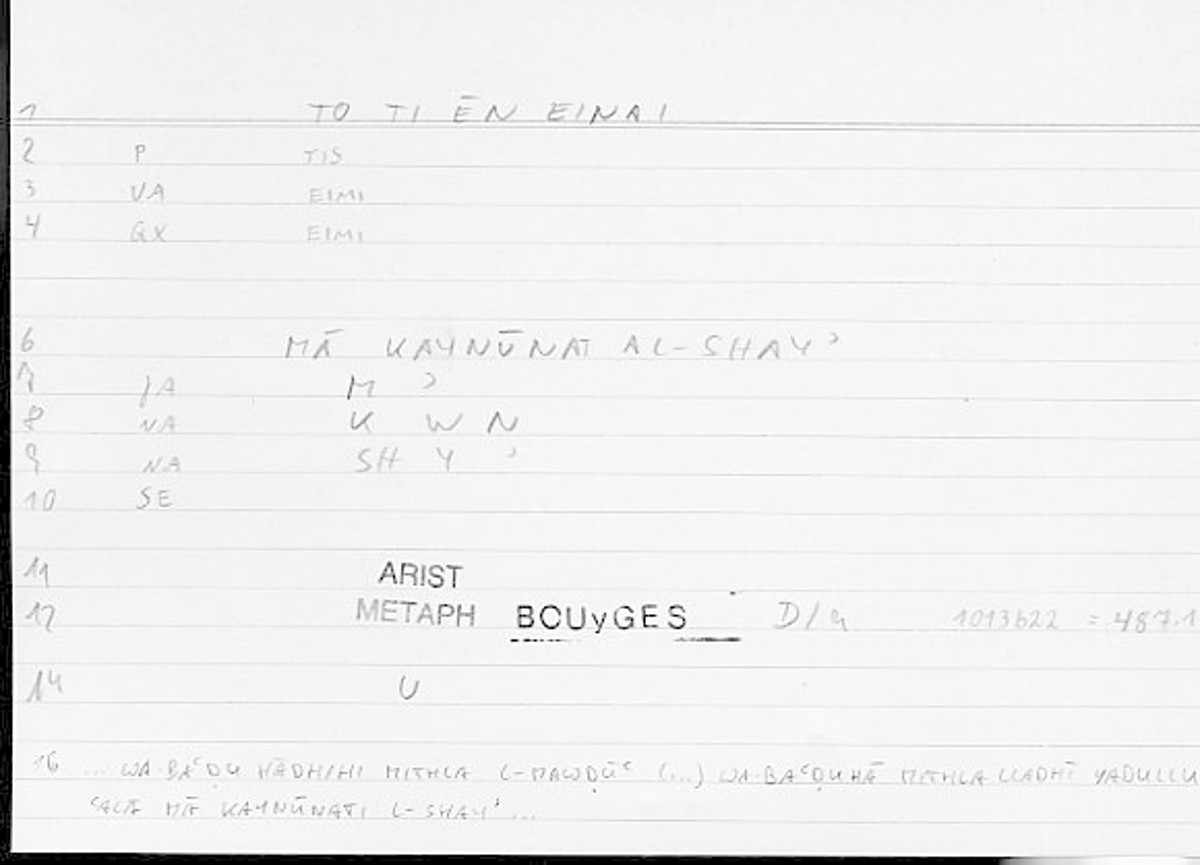 1 TO TI ĒN EINAI
2 P TIS
3 VA EIMI
4 GX EIMI
6 MĀ KAYNŪNAT AL-SHAYʾ
7 JA M ʾ
8 NA K W N
9 NA SH Y ʾ
10 SE
11 ARIST
12 METAPH BOUyGES D/4 1013b22 = 487.1
14 U
16 ... WA-BAʿḌU HĀDHIHI MITHLA L-MAWḌŪʿ (...) WA-BAʿḌUHĀ MITHLA LLADHĪ YADULLU
ʿALĀ MĀ KAYNŪNATI L-SHAYʾ ...